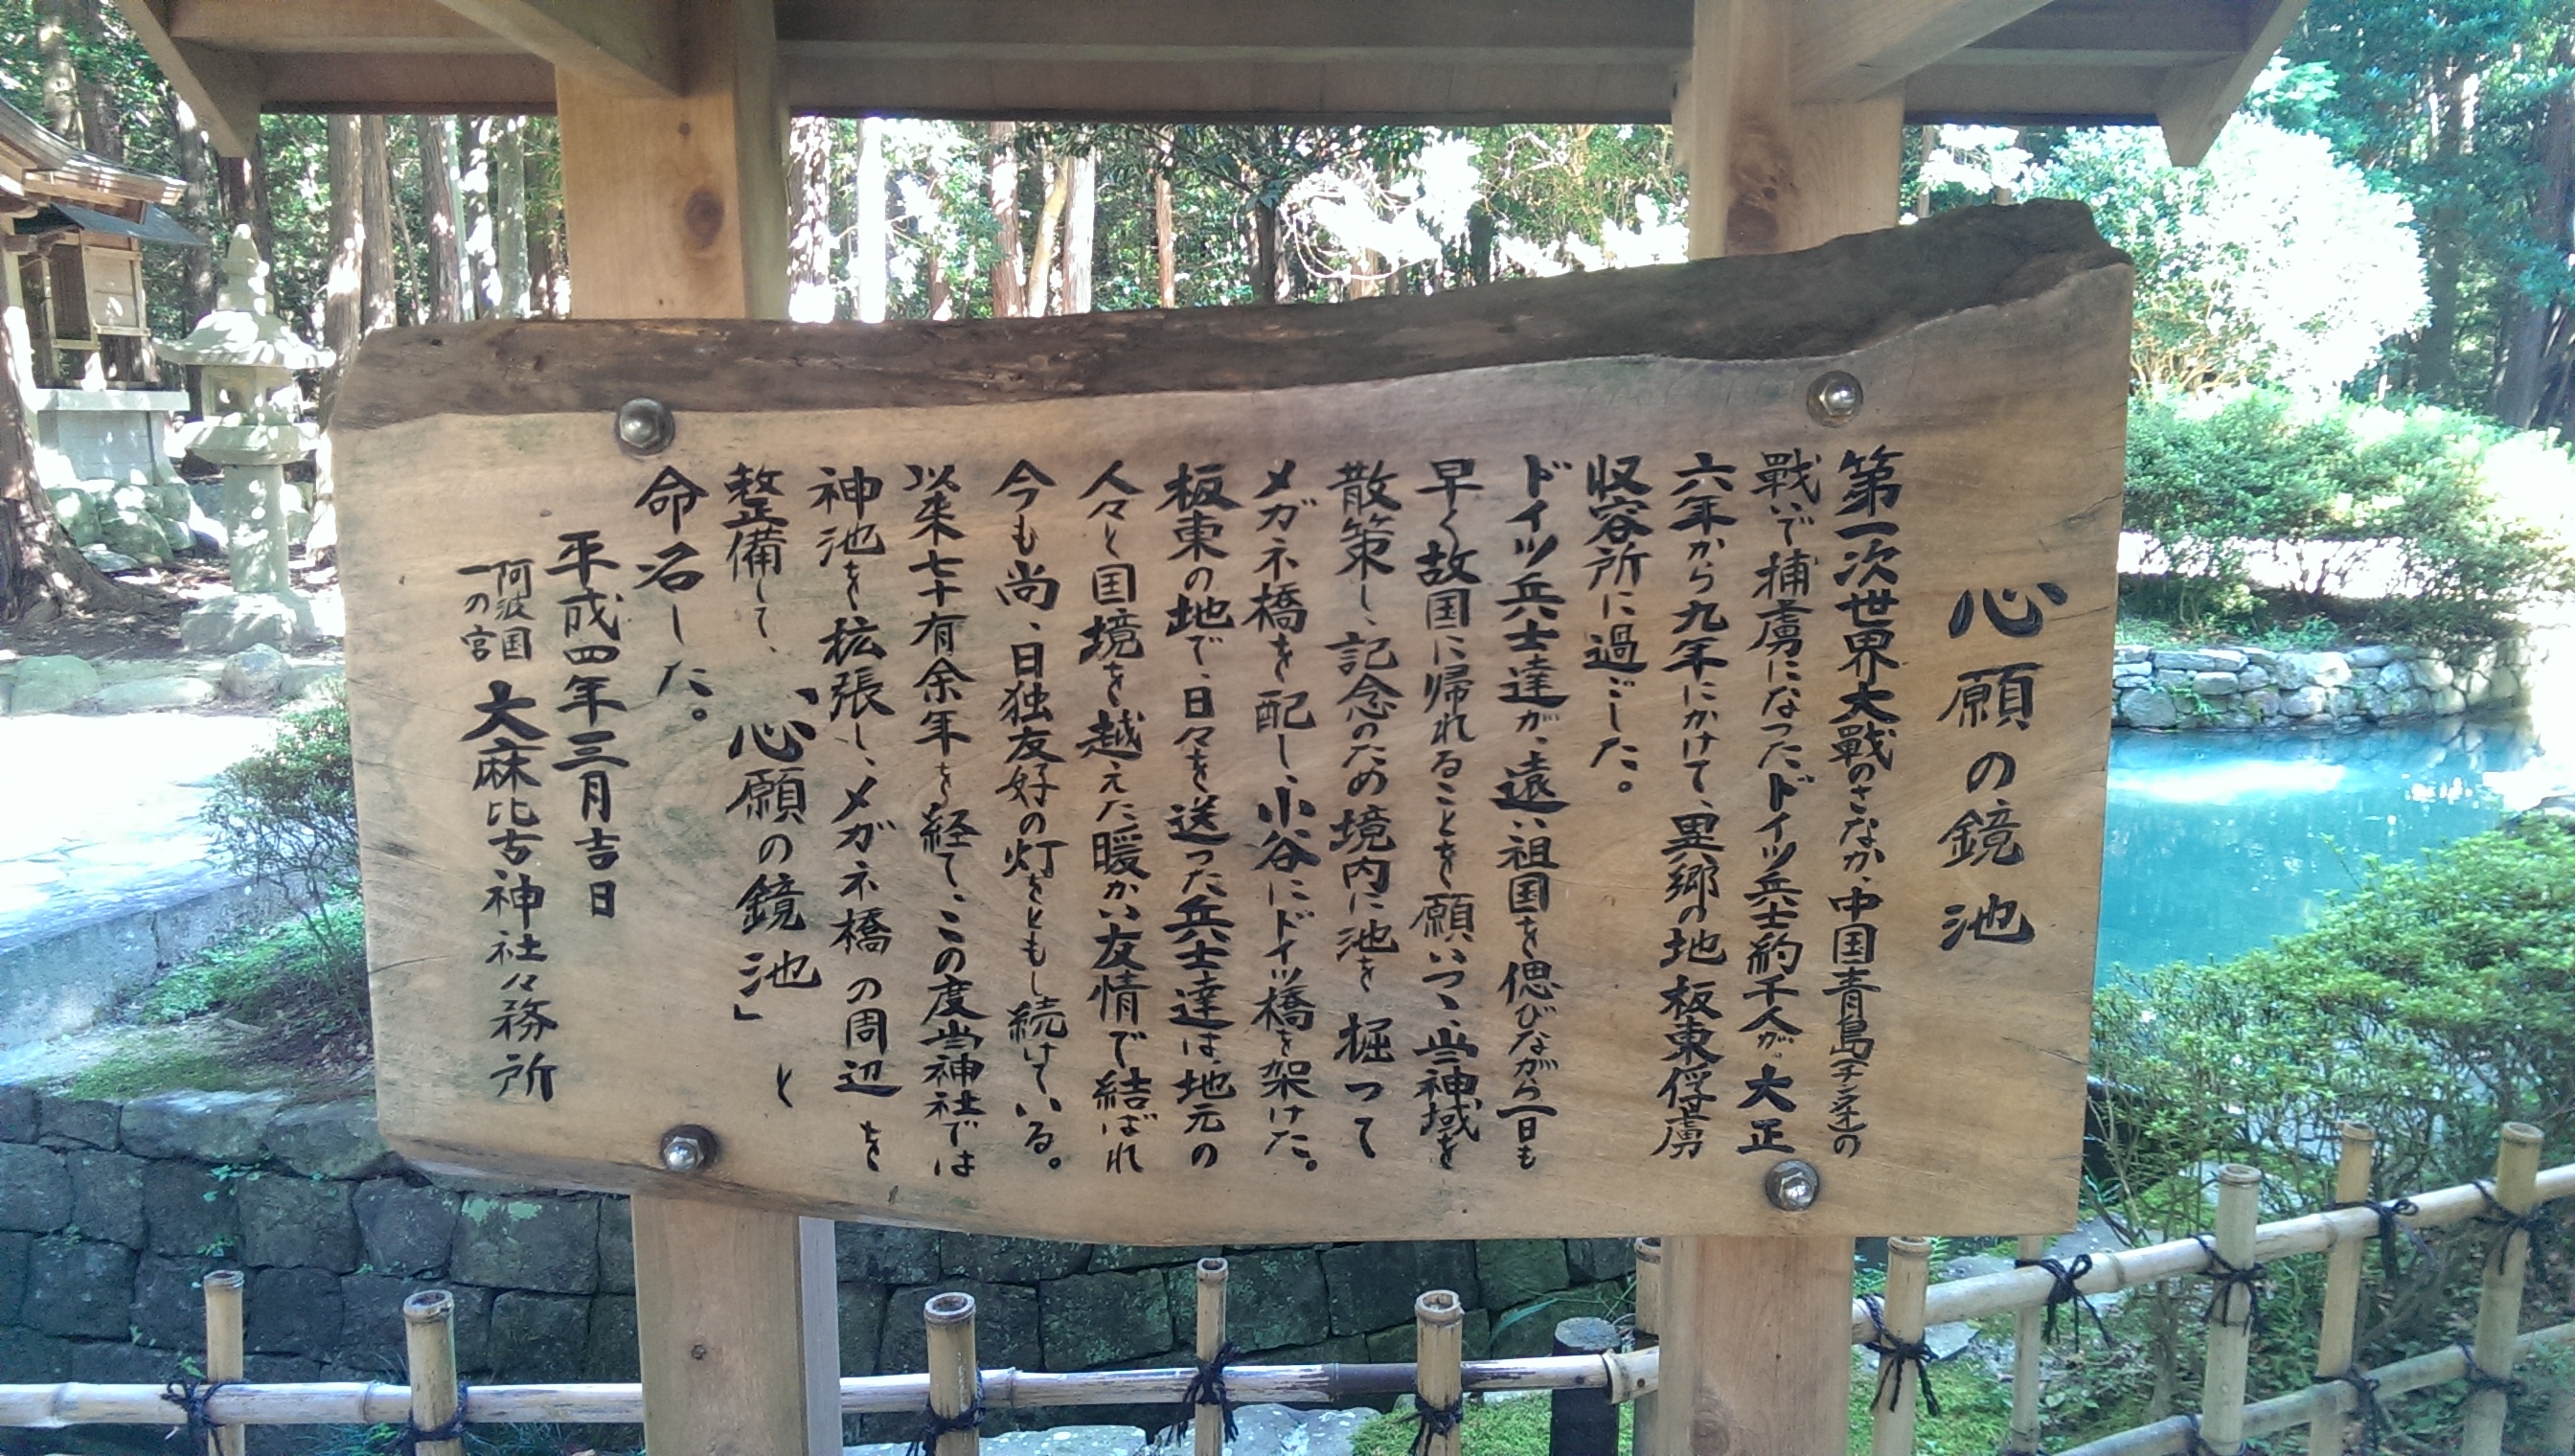 心願の鏡池
第一次世界大戰のさなか、中国青島(チンタオ)の
戰いで捕虜になったドイツ兵士約千人が、大正
六年から九年にかけて、異郷の地板東俘虜
収容所に過ごした。
ドイツ兵士達が、遠い祖国を偲びながら一日も
早く故国に帰れることを願いつつ、当神域を
散策し、記念のため境内に池を掘って
メガネ橋を配し、小谷にドイツ橋を架けた。
板東の地で、日々を送った兵士達は、地元の
人々と国境を越えた暖かい友情で結ばれ
今も尚、日独友好の灯をともし続けている。
以来七十有余年を経て、この度当神社では
神池を拡張し、メガネ橋の周辺を
整備して、「心願の鏡池」と
命名した。
平成四年三月吉日
阿波国
一の宮
大麻比古神社々務所